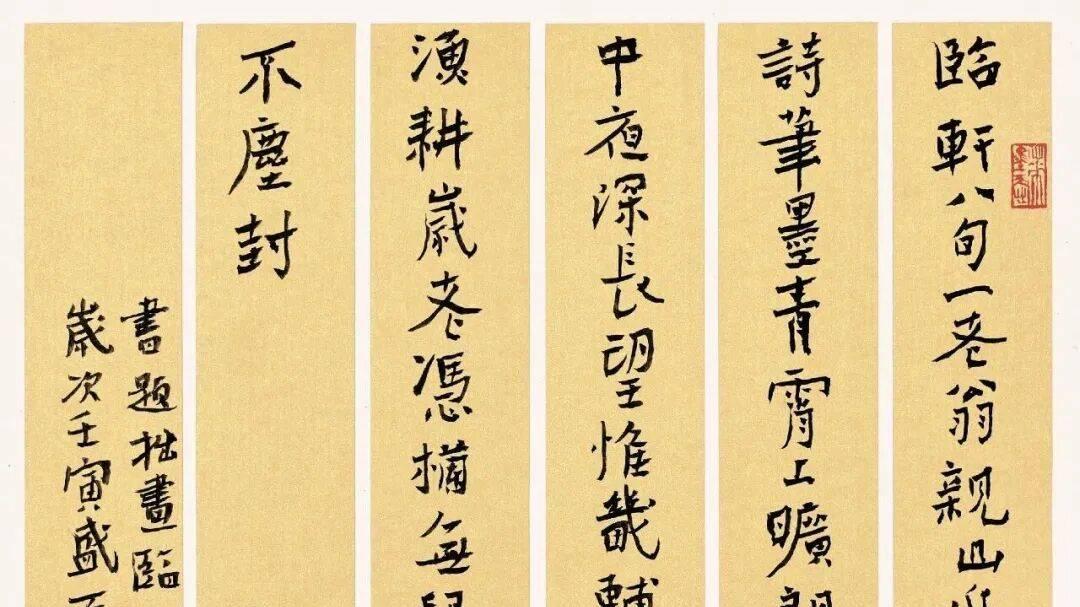 臨軒八句一老翁親山
詩筆墨青霄上曠朗
中夜深長望惟畿輔
漁耕歲老憑橫無
不塵封
書題拙畫臨
歲次壬寅盛